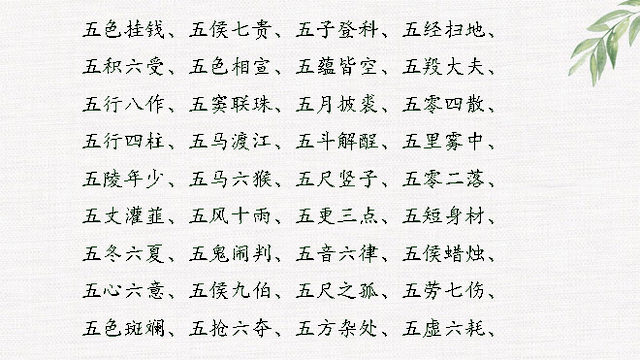 五色挂钱、五侯七贵、五子登科、五经扫地、
五积六受、五色相宣、五蕴皆空、五羖大夫、
五行八作、五窦联珠、五月披裘、五零四散、
五行四柱、五马渡江、五斗解酲、五里雾中、
五陵年少、五马六猴、五尺竖子、五零二落、
五丈灌韮、五风十雨、五更三点、五短身材、
五冬六夏、五鬼闹判、五音六律、五侯蜡烛、
五心六意、五侯九伯、五尺之孤、五劳七伤、
五色斑斓、五抢六夺、五方杂处、五虚六耗、